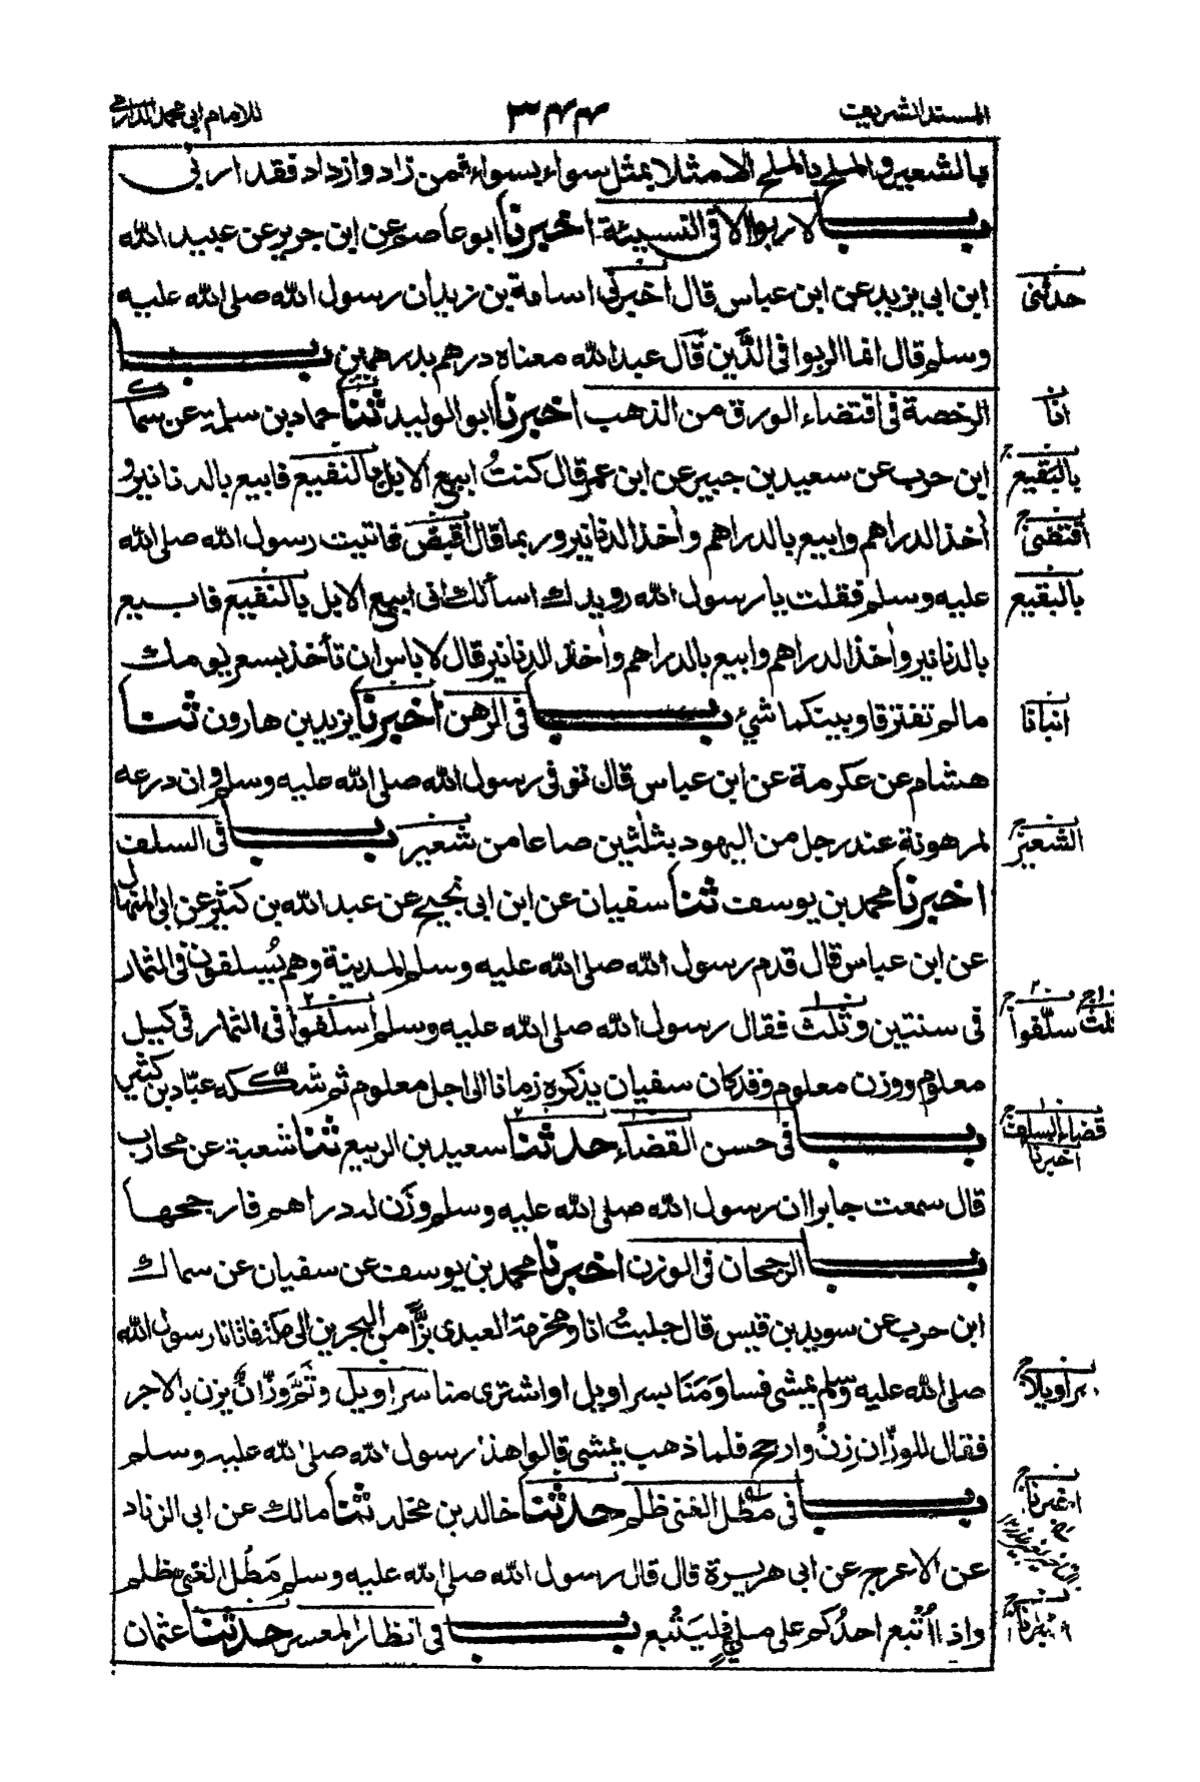 المسند الشريف
٣٤٤
للامام ابى محمد الدارمى
بالشعير والملح بالملح الا مثلا بمثل سواء بسواء فمن زاد وازداد فقد اربى
باب لا ربوا الا فى النسيئة اخبرنا ابو عاصم عن ابن جريج عن عبيد الله
ابن ابى يزيد عن ابن عباس قال اخبرنى اسامة بن زيد ان رسول الله صلى الله عليه
حدثنى
وسلم قال انما الربوا فى الدَّين قال عبد الله معناه درهم بدرهمين باب
الرخصة فى اقتضاء الورق من الذهب اخبرنا ابو الوليد ثنا حماد بن سلمة عن سماك
انا
ابن حرب عن سعيد بن جبير عن ابن عمر قال كنتُ ابيع الابل بالنقيع فابيع بالدنانير و
بالبقيع
أخذ الدراهم وابيع بالدراهم وأخذ الدنانير وربما قال اقبض فاتيت رسول الله صلى الله
اقتضى
عليه وسلم فقلت يا رسول الله رويدك اسألك انى ابيع الابل بالنقيع فابيع
بالبقيع
بالدنانير وأخذ الدراهم وابيع بالدراهم وأخذ الدنانير قال لا باس ان تأخذ بسعر يومك
مالم تفترقا وبينكما شيئ باب فى الرهن اخبرنا يزيد بن هارون ثنا
انبانا
هشام عن عكرمة عن ابن عباس قال توفى رسول الله صلى الله عليه وسلم وان درعه
لمرهونة عند رجل من اليهود بثلثين صاعا من شعير باب فى السلف
الشعير
اخبرنا محمد بن يوسف ثنا سفيان عن ابن ابى نجيح عن عبد الله بن كثير عن ابى المنهال
عن ابن عباس قال قدم رسول الله صلى الله عليه وسلم المدينة وهم يُسلفون فى الثمار
فى سنتين وثلث فقال رسول الله صلى الله عليه وسلم اسلفوا فى الثمار فى كيل
سلّفوا
معلوم ووزن معلوم وقد كان سفيان يذكره زمانا الى اجل معلوم ثم شككه عبّاد بن كثير
باب فى حسن القضاء حدثنا سعيد بن الربيع ثنا شعبة عن محارب
قضاء السلف
اخبرنا
قال سمعت جابرا ان رسول الله صلى الله عليه وسلم وَزَن له دراهم فارجحها
باب الرجحان فى الوزن اخبرنا محمد بن يوسف عن سفيان عن سماك
ابن حرب عن سويد بن قيس قال جلبتُ انا ومخرمة العبدى بزًّا من البحرين الى مكة فاتانا رسول الله
صلى الله عليه وسلم يمشى فساوَمَنَا بسراويل او اشترى منا سراويل وثَمَّ وزّانٌ يزن بالاجر
سراويلا
فقال للوزّان زِنْ وارجح فلما ذهب يمشى قالوا هذا رسول الله صلى الله عليه وسلم
باب فى مَطْل الغنى ظلم حدثنا خالد بن مخلد ثنا مالك عن ابى الزناد
اخبرنا
عن الاعرج عن ابى هريرة قال قال رسول الله صلى الله عليه وسلم مَطْل الغنى ظلم
واذا أُتْبع احدُكم على ملىٍّ فليَتْبع باب فى انظار المعسر حدثنا عثمان
اخبرنا